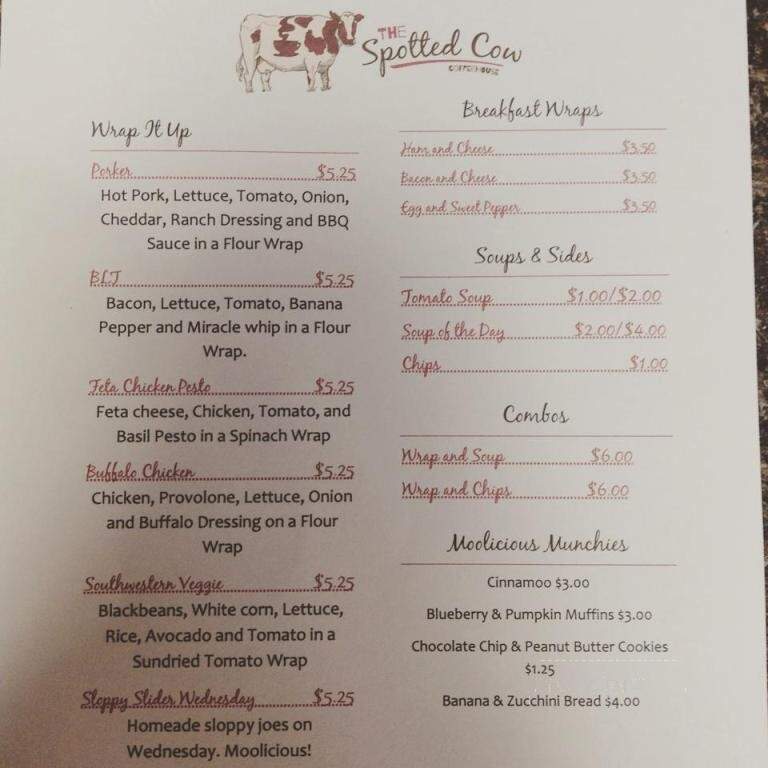 THE
Spotted Cow
COFFEEHOUSE
Wrap It Up
Porker $5.25
Hot Pork, Lettuce, Tomato, Onion,
Cheddar, Ranch Dressing and BBQ
Sauce in a Flour Wrap
BLT $5.25
Bacon, Lettuce, Tomato, Banana
Pepper and Miracle whip in a Flour
Wrap.
Feta Chicken Pesto $5.25
Feta cheese, Chicken, Tomato, and
Basil Pesto in a Spinach Wrap
Buffalo Chicken $5.25
Chicken, Provolone, Lettuce, Onion
and Buffalo Dressing on a Flour
Wrap
Southwestern Veggie $5.25
Blackbeans, White corn, Lettuce,
Rice, Avocado and Tomato in a
Sundried Tomato Wrap
Sloppy Slider Wednesday $5.25
Homeade sloppy joes on
Wednesday. Moolicious!
Breakfast Wraps
Ham and Cheese $3.50
Bacon and Cheese $3.50
Egg and Sweet Pepper $3.50
Soups & Sides
Tomato Soup $1.00/$2.00
Soup of the Day $2.00/$4.00
Chips $1.00
Combos
Wrap and Soup $6.00
Wrap and Chips $6.00
Moolicious Munchies
Cinnamoo $3.00
Blueberry & Pumpkin Muffins $3.00
Chocolate Chip & Peanut Butter Cookies
$1.25
Banana & Zucchini Bread $4.00